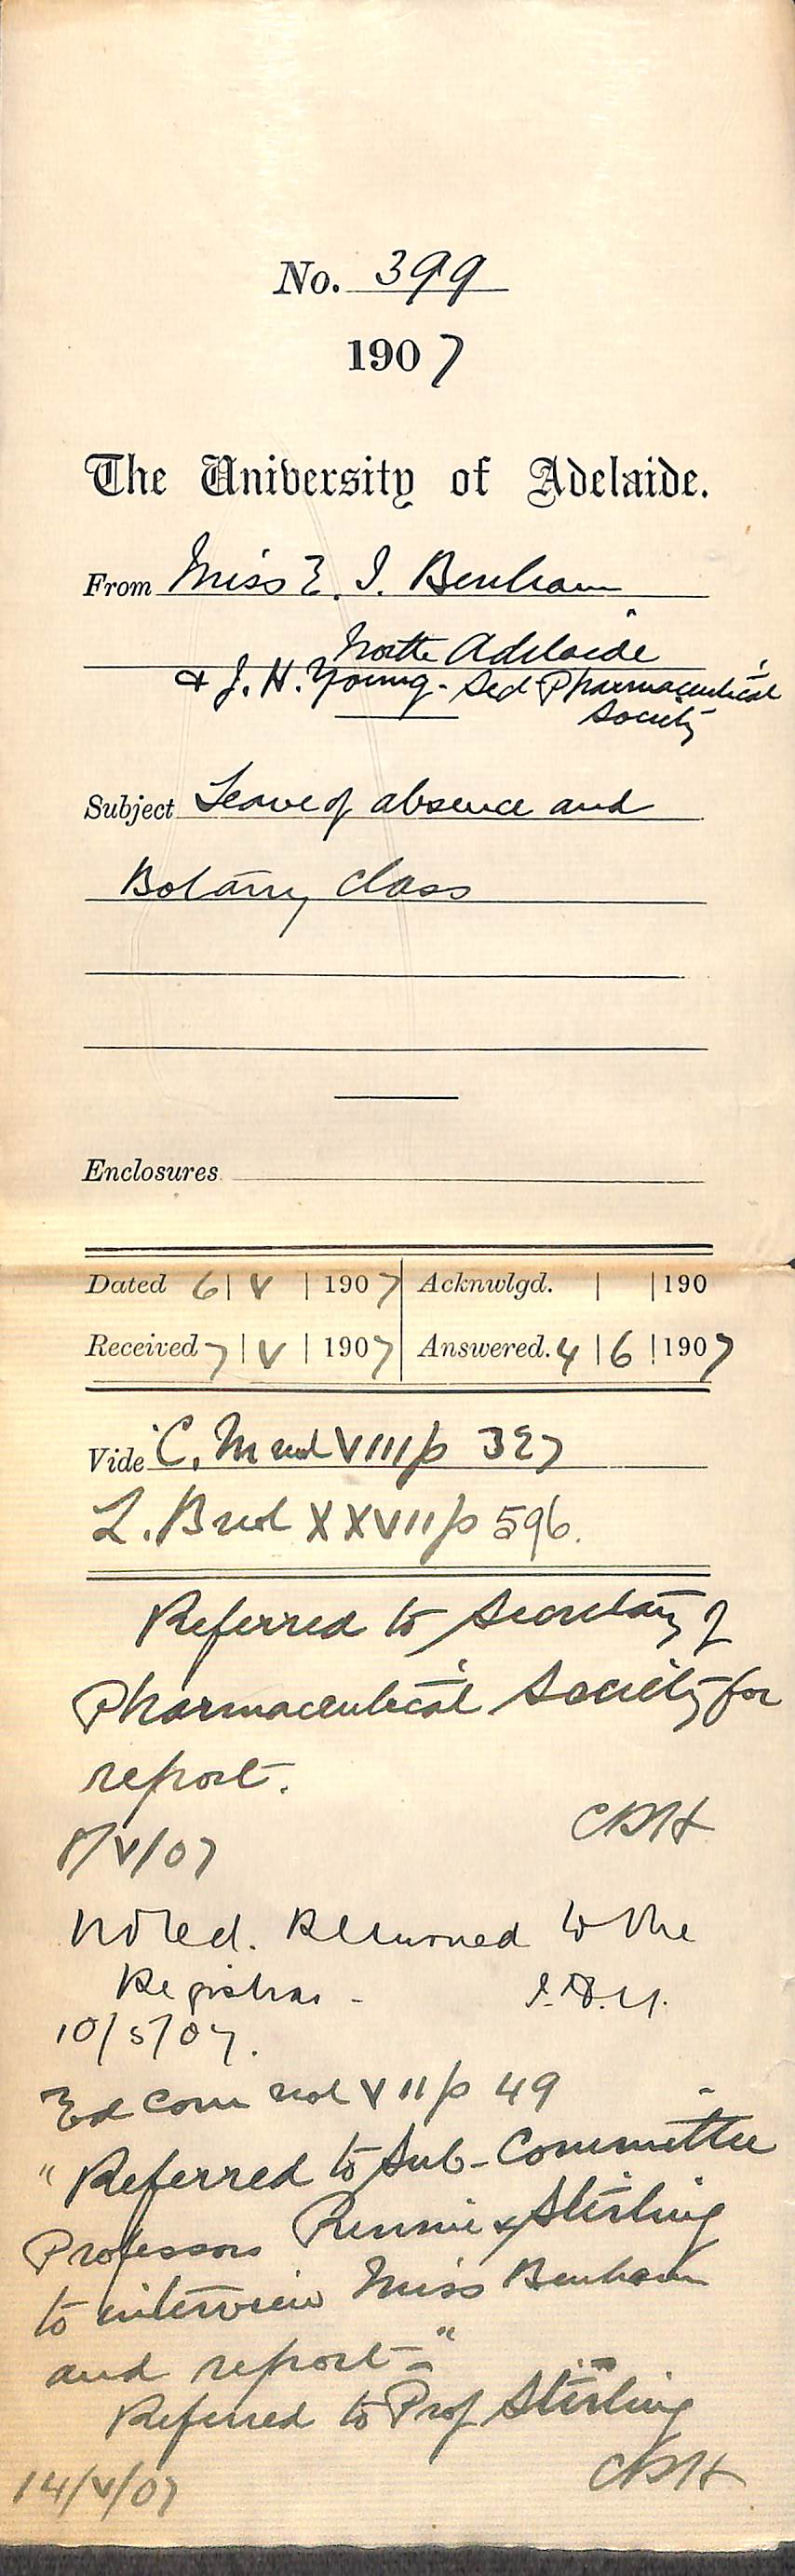 No. 399
1907
The University of Adelaide.
From Miss E. I. Benham
North Adelaide
& J. H. Young - Sec Pharmaceutical
Society
Subject Leave of absence and
Botany Class
Enclosures
Dated 6|V|1907 Acknwlgd. | |190
Received 7|V|1907 Answered. 4|6|1907
Vide C. M vol VIII p 327
L. B vol XXVII p 596.
Referred to Secretary of
Pharmaceutical Society for
report.
CRH
8/V/07
Noted. Returned to the
Registrar - J.H.Y.
10/5/07.
Ed Com vol VII p 49
"Referred to Sub-Committee
Professors Rennie & Stirling
to interview Miss Benham
and report-"
Referred to Prof Stirling
CRH
14/V/07